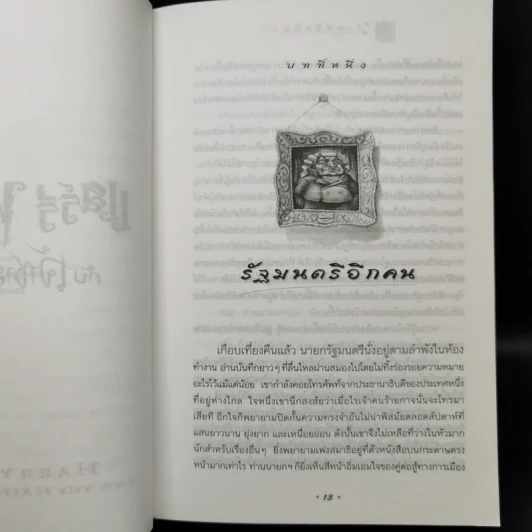 บทที่หนึ่ง
รัฐมนตรีอีกคน
เกือบเที่ยงคืนแล้ว นายกรัฐมนตรีนั่งอยู่ตามลำพังในห้อง
ทำงาน อ่านบันทึกยาวๆ ที่ลื่นไหลผ่านสมองไปโดยไม่ทิ้งร่องรอยความหมาย
อะไรไว้แม้แต่น้อย เขากำลังคอยโทรศัพท์จากประธานาธิบดีของประเทศหนึ่ง
ที่อยู่ห่างไกล ใจหนึ่งเขานึกสงสัยว่าเมื่อไรเจ้าคนร้ายกาจนั่นจะโทรมา
เสียที อีกใจก็พยายามปิดกั้นความทรงจำอันไม่น่าพิสมัยตลอดสัปดาห์ที่
แสนยาวนาน ยุ่งยาก และเหนื่อยอ่อน ดังนั้นเขาจึงไม่เหลือที่ว่างในหัวมาก
นักสำหรับเรื่องอื่นๆ ยิ่งพยายามเพ่งสมาธิอยู่ที่ตัวหนังสือบนกระดาษตรง
หน้ามากเท่าไร ท่านนายกฯ ก็ยิ่งเห็นสีหน้าอิ่มเอมใจของคู่ต่อสู้ทางการเมือง
13
HARRY